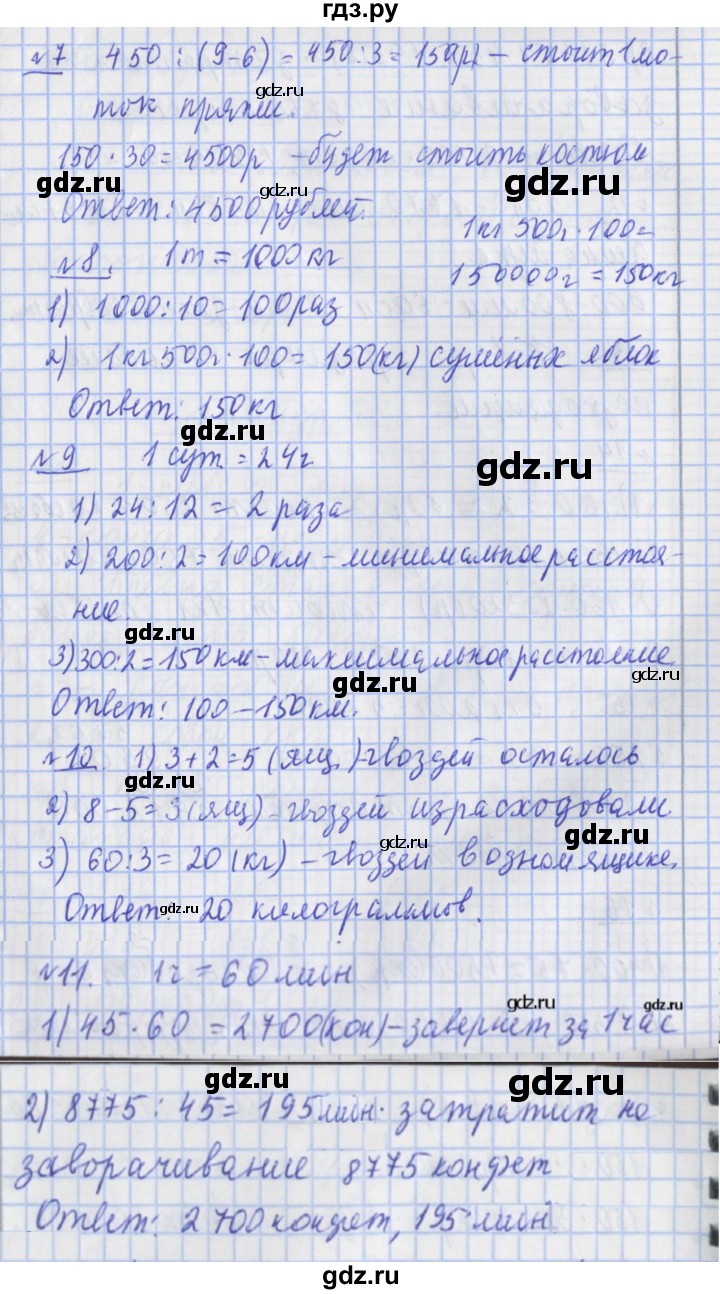 гдз.ру
№7 450 : (9-6) = 450:3 = 150(р) – стоит 1 мо-
ток пряжи.
gdz.ru
150 · 30 = 4500р – будет стоить костюм
gdz.ru gdz.ru gdz.ru
Ответ: 4500 рублей.
1кг 500г · 100 =
№8. 1т = 1000кг
150000г = 150кг
gdz.ru
1) 1000:10 = 100 раз
2) 1кг 500г · 100 = 150(кг) сушёных яблок
Ответ: 150кг
gdz.ru gdz.ru
№9 1 сут = 24г
1) 24:12 = 2 раза
gdz.ru
2) 200:2 = 100км – минимальное расстоя-
ние.
gdz.ru
3) 300:2 = 150км – максимальное расстояние
gdz.ru
Ответ: 100 – 150км.
№10. 1) 3+2=5 (ящ.) – гвоздей осталось
gdz.ru
2) 8-5=3(ящ) – гвоздей израсходовали
gdz.ru gdz.ru
3) 60:3 = 20 (кг) – гвоздей в одном ящике.
Ответ: 20 килограммов.
gdz.ru
№11. 1г = 60 мин
gdz.ru gdz.ru
1) 45 · 60 = 2700(кон) – завернет за 1 час
gdz.ru gdz.ru
2) 8775 : 45 = 195 мин. затратит на
заворачивание 8775 конфет
Ответ: 2700 конфет, 195 мин.
gdz.ru